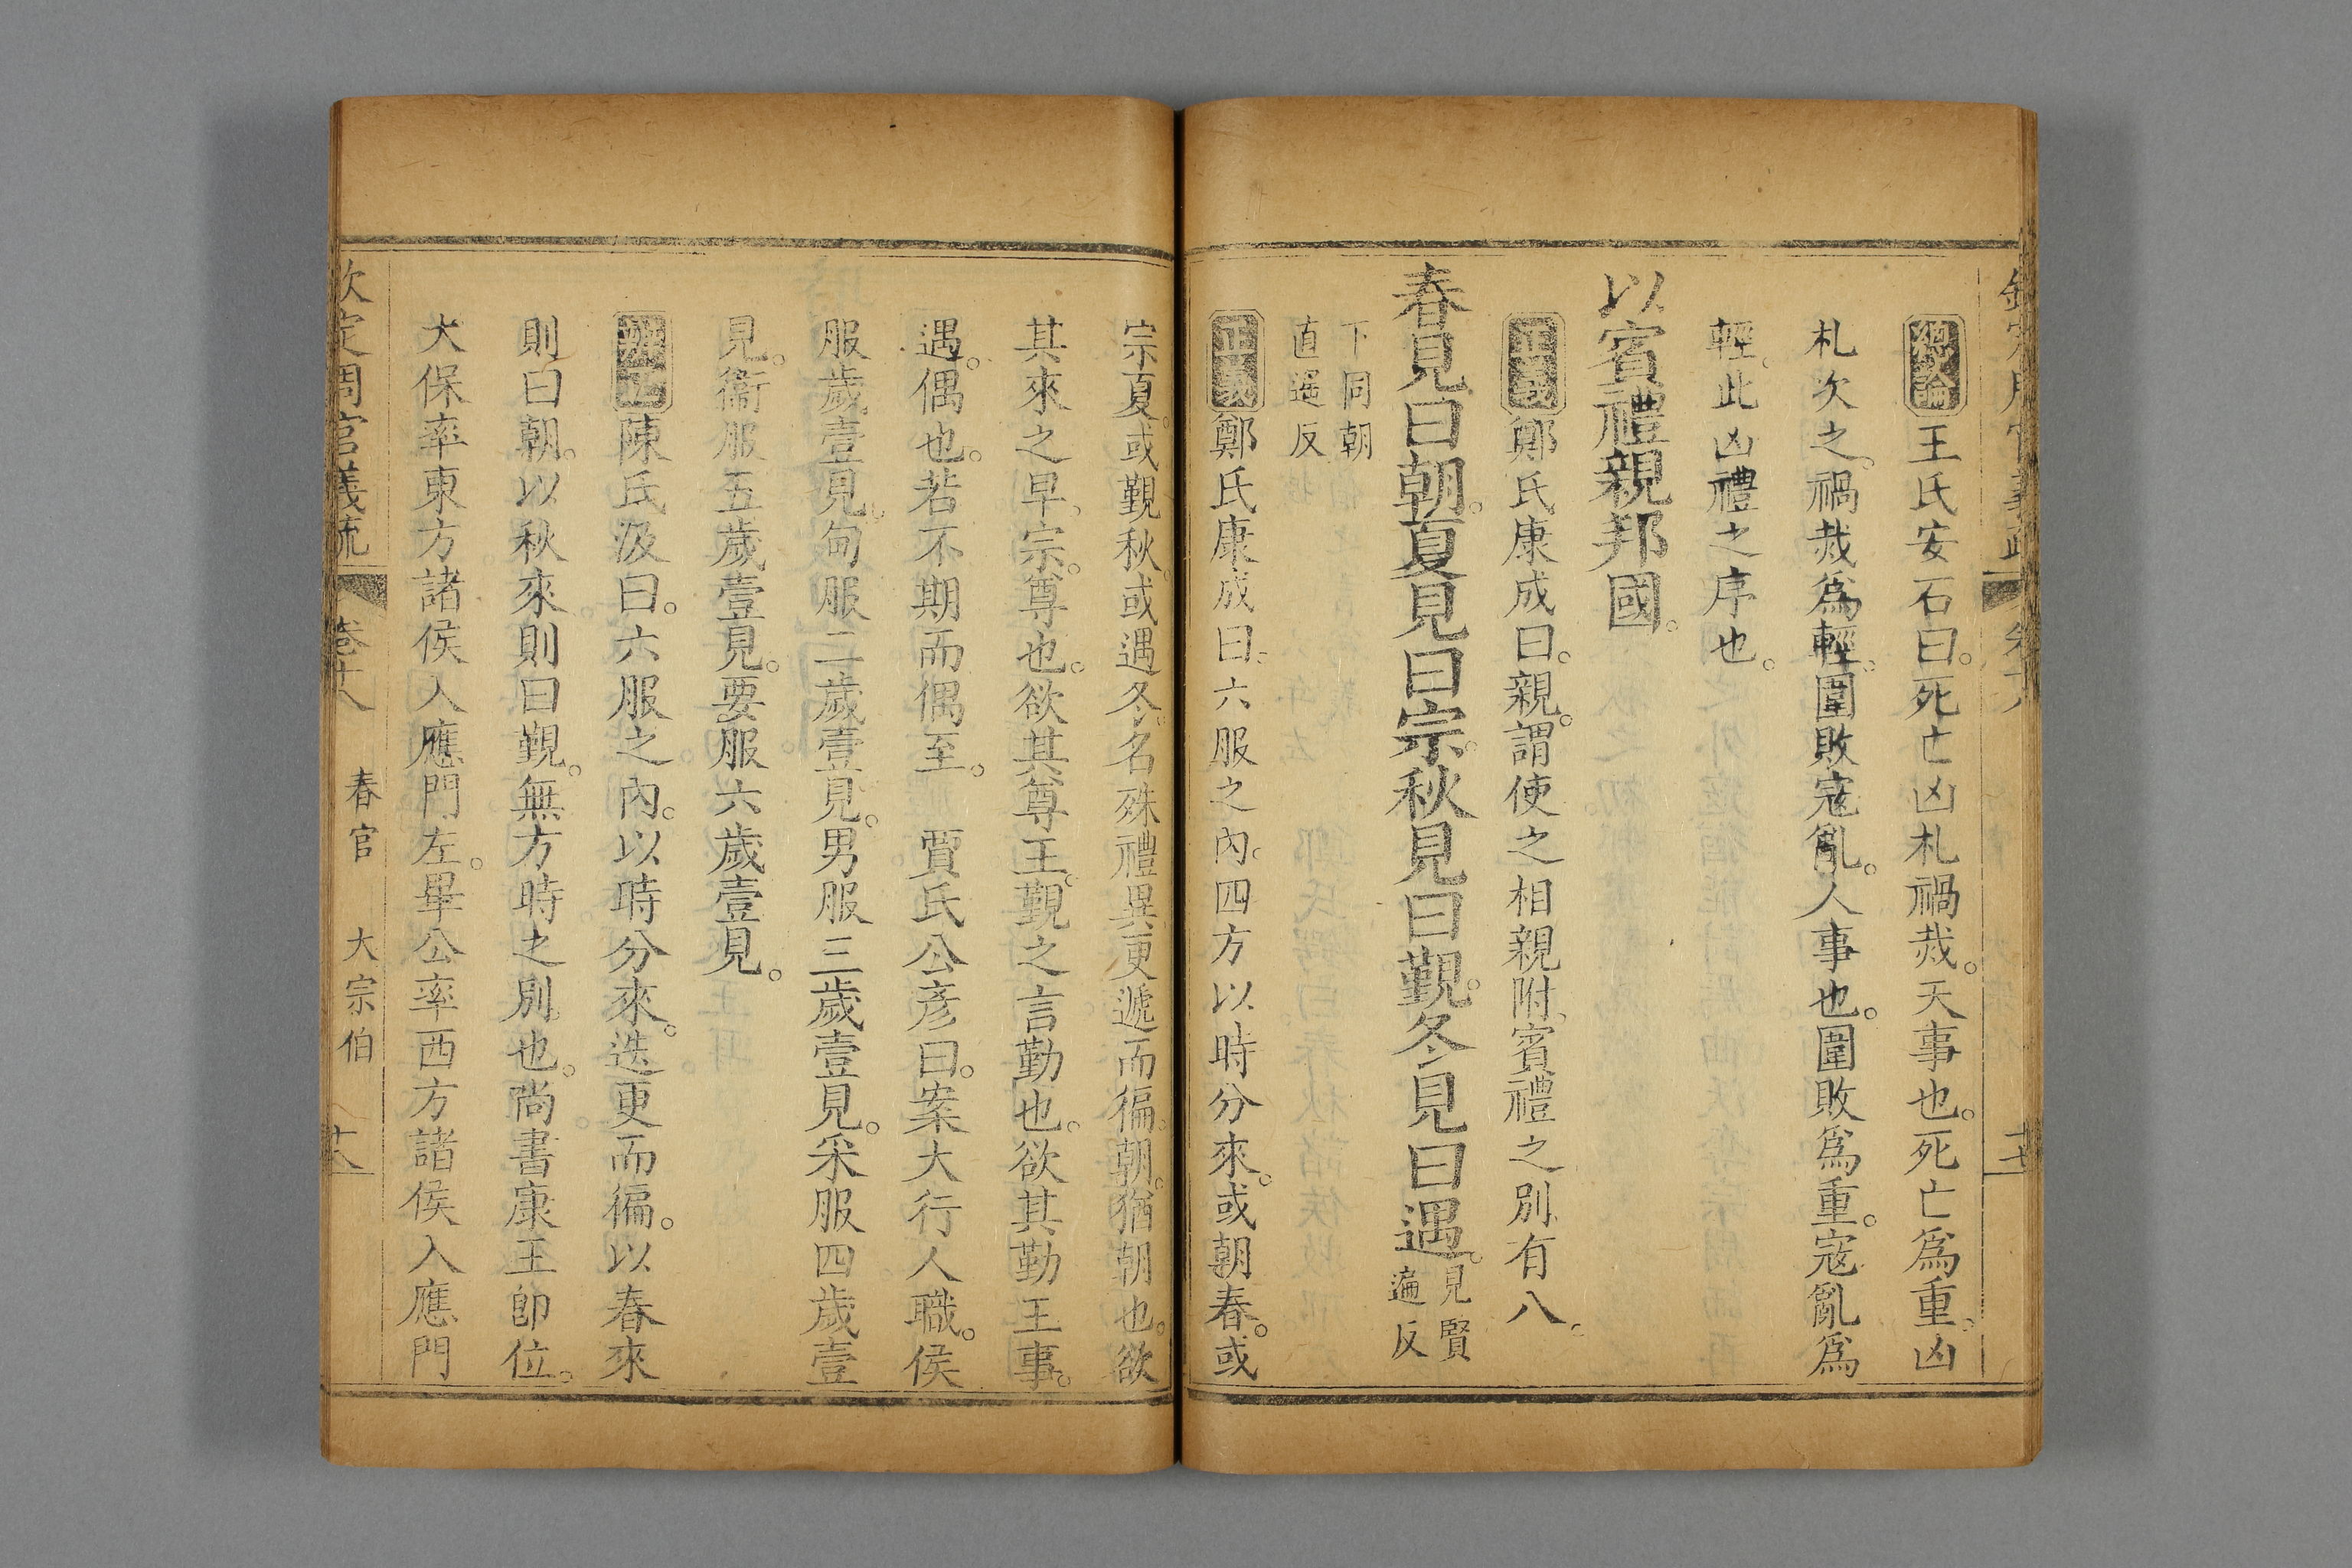 總論王氏安石曰。死亡凶札禍烖。天事也。死亡爲重。凶
札次之。禍烖爲輕。圍敗寇亂。人事也。圍敗爲重。寇亂爲
輕。此凶禮之序也。
以賓禮親邦國。
正義鄭氏康成曰。親。謂使之相親附。賓禮之別有八。
春見曰朝。夏見曰宗。秋見曰覲。冬見曰遇。見賢遍反
下同朝直遥反
正義鄭氏康成曰。六服之內。四方以時分來。或朝春。或
宗夏。或覲秋。或遇冬。名殊禮異。更遞而徧。朝。猶朝也。欲
其來之早。宗。尊也。欲其尊王。覲之言勤也。欲其勤王事。
遇。偶也。若不期而偶至。 賈氏公彥曰。案大行人職。侯
服歲壹見。甸服二歲壹見。男服三歲壹見。采服四歲壹
見。衞服五歲壹見。要服六歲壹見。
陳氏汲曰。六服之內。以時分來。迭更而徧。以春來
則曰朝。以秋來則曰覲。無方時之別也。尚書康王卽位。
大保率東方諸侯入應門左。畢公率西方諸侯入應門
欽定周官義疏 卷十八 春官 大宗伯 十八